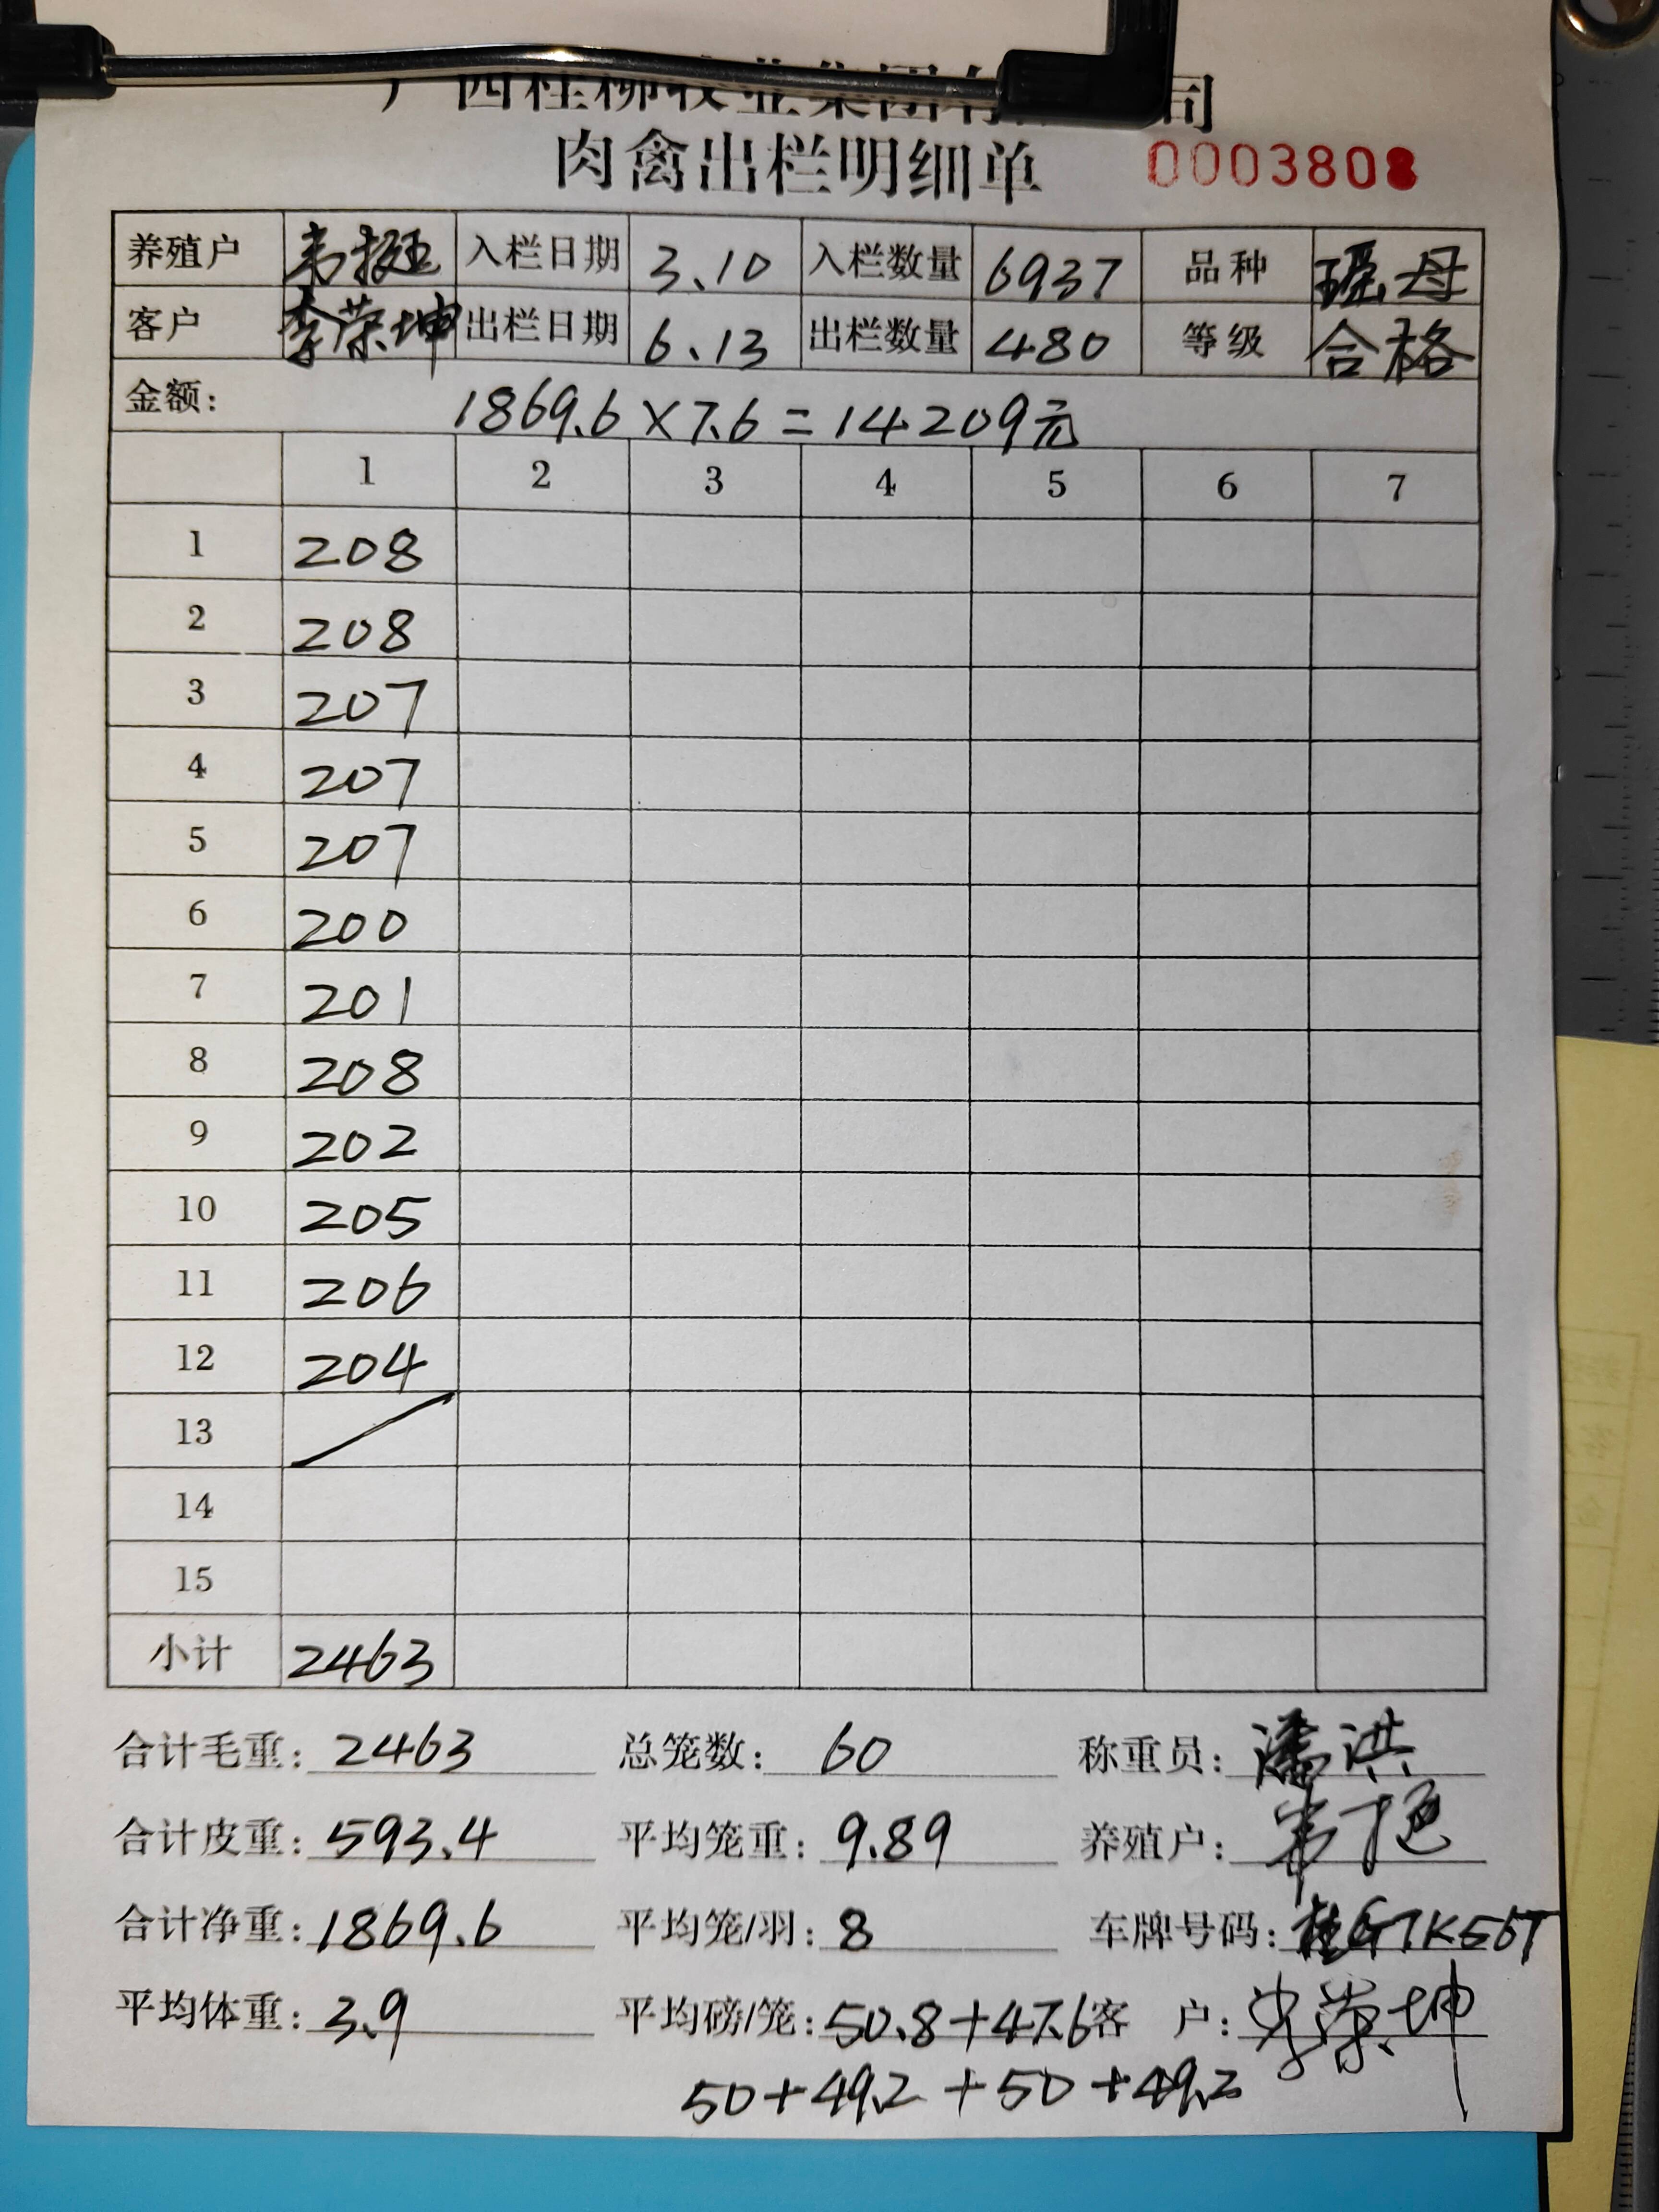 广西桂柳牧业集团有 司
肉禽出栏明细单 0003808
养殖户 韦挺 入栏日期 3.10 入栏数量 6937 品种 瑶母
客户 李荣坤 出栏日期 6.13 出栏数量 480 等级 合格
金额: 1869.6×7.6=14209元
1 2 3 4 5 6 7
1 208
2 208
3 207
4 207
5 207
6 200
7 201
8 208
9 202
10 205
11 206
12 204
13
14
15
小计 2463
合计毛重: 2463 总笼数: 60 称重员: 潘洪
合计皮重: 593.4 平均笼重: 9.89 养殖户:
合计净重: 1869.6 平均笼/羽: 8 车牌号码:
平均体重: 3.9 平均磅/笼: 50.8+47.6 客 户: 李荣坤
50+49.2+50+49.2